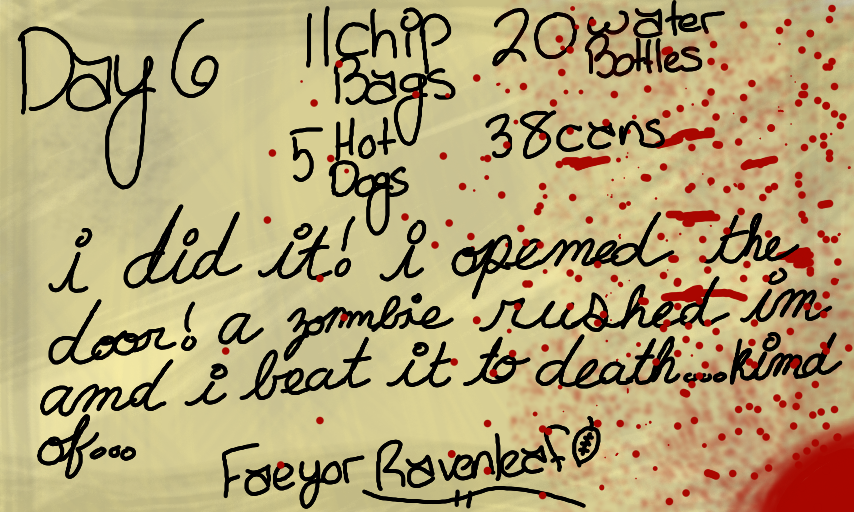 Day 6
11 Chip Bags
20 Water Bottles
5 Hot Dogs
38 cans
i did it! i opened the
door! a zombie rushed in
and i beat it to death...kind
of...
Faeyor Ravenleaf